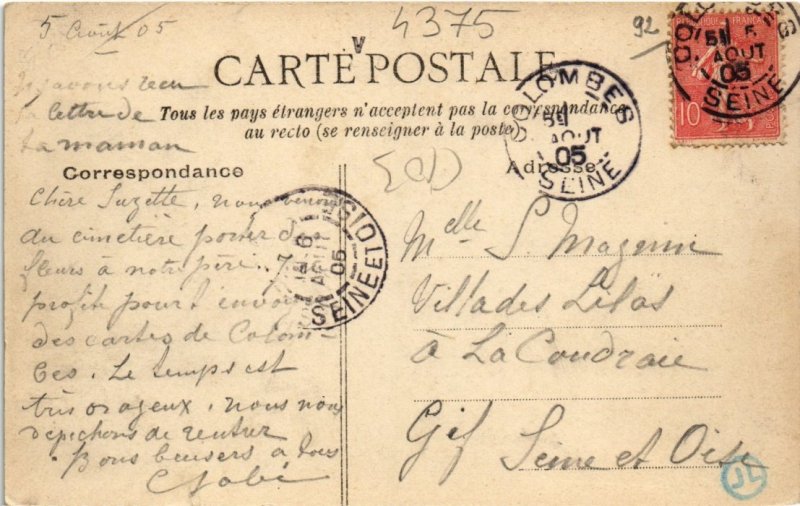 5 Août 05
4375
92
CARTE POSTALE
Tous les pays étrangers n'acceptent pas la correspondance
au recto (se renseigner à la poste)
Nous avons reçu
la lettre de
ta maman
Correspondance
Adresse
Chère Suzette, nous venons
du cimetière porter des
fleurs à notre père. J'en
profite pour t'envoyer
des cartes de Colom-
bes. Le temps est
très orageux, nous nous
dépêchons de rentrer
Bons baisers à tous
Melle S. Magnin
Villa des Lilas
à La Coudraie
Gif Seine et Oise
COLOMBES
5 AOUT 05
SEINE
COLOMBES
5 AOUT 05
SEINE
6 AOUT 05
SEINE ET OIS
RÉPUBLIQUE FRANÇAISE
10
JL